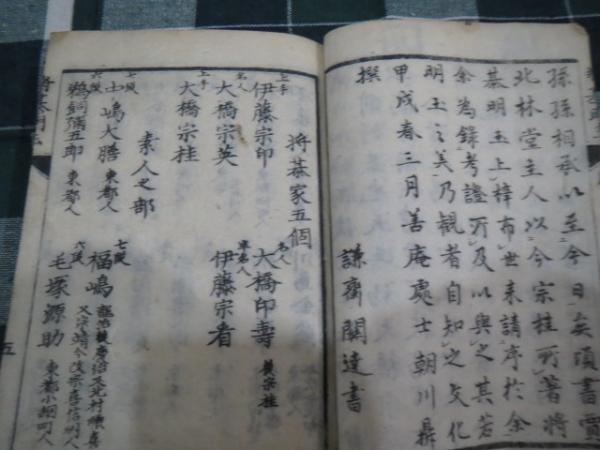 孫孫相承以至今日矣頃書賈
北林堂主人以今宗桂所著将
棊明玉上梓布世来請序於余
余為録考證所及以與之其若
明玉之美乃観者自知之文化
甲戌春三月善庵處士朝川鼎
撰　謙齋關達書
将棊家五個
上手 伊藤宗印　名人 大橋印壽 後宗桂
名人 大橋宗英　準名人 伊藤宗看
上手 大橋宗桂
素人之部
七段 土嶋大膳 東都人　七段 福嶋
六段 鵜飼彌五郎 東都人　六段 毛塚源助 東都小網町人
五